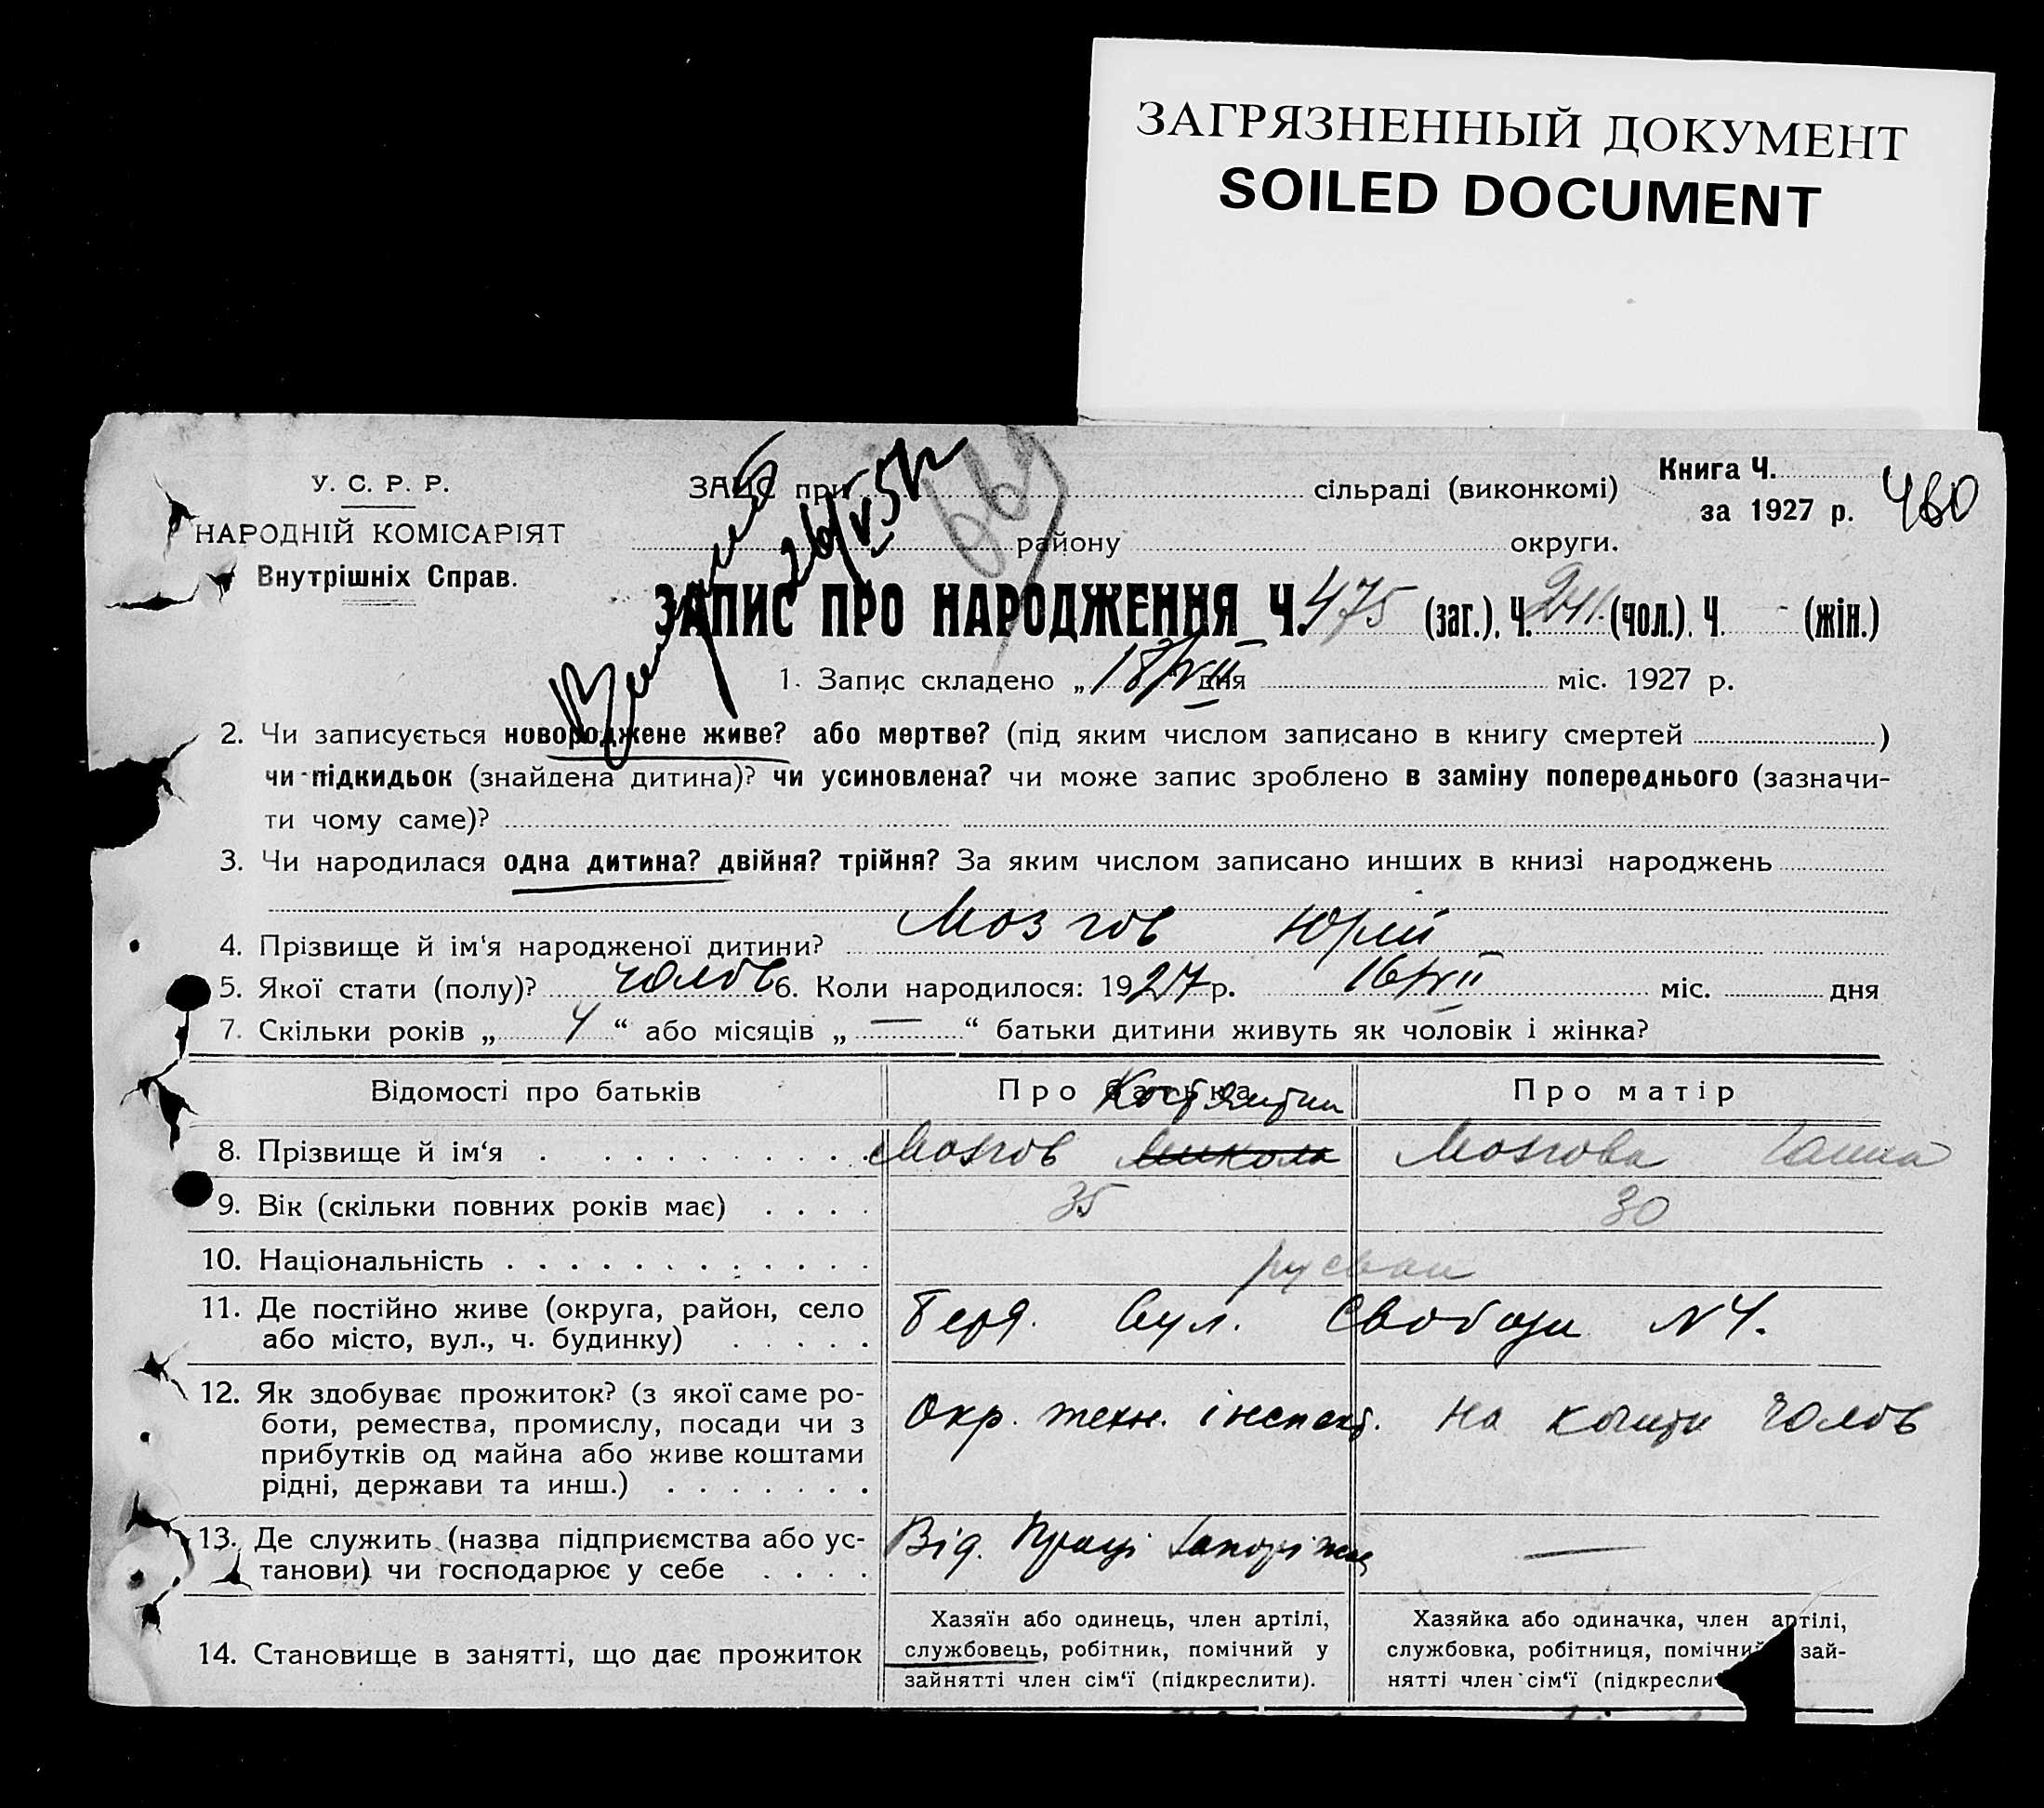 ЗАГРЯЗНЕННЫЙ ДОКУМЕНТ
SOILED DOCUMENT
У. С. Р. Р.
НАРОДНІЙ КОМІСАРІЯТ
Внутрішніх Справ.
ЗАПИС при сільраді (виконкомі)
району округи.
Книга Ч.
за 1927 р. 460
26/V 57
ЗАПИС ПРО НАРОДЖЕННЯ Ч. 475 (заг.). Ч. 241 (чол.). Ч. - (жін.)
1. Запис складено „18/VII“ дня міс. 1927 р.
2. Чи записується новороджене живе? або мертве? (під яким числом записано в книгу смертей )
чи підкидьок (знайдена дитина)? чи усиновлена? чи може запис зроблено в заміну попереднього (зазначи-
ти чому саме)?
3. Чи народилася одна дитина? двійня? трійня? За яким числом записано инших в книзі народжень
4. Прізвище й ім‘я народженої дитини? Мозгов Юрій
5. Якої стати (полу)? чолов 6. Коли народилося: 1927 р. 16/VII міс. дня
7. Скільки років „ 4 “ або місяців „ — “ батьки дитини живуть як чоловік і жінка?
Відомості про батьків Про батька Про матір
Костянтин
8. Прізвище й ім‘я Мозгов Микола Мозгова Ганна
9. Вік (скільки повних років має) 35 30
10. Національність руськи
11. Де постійно живе (округа, район, село
або місто, вул., ч. будинку)
Берд. вул. Свободи N 4.
12. Як здобуває прожиток? (з якої саме ро-
боти, ремества, промислу, посади чи з
прибутків од майна або живе коштами
рідні, держави та инш.)
Окр. техн. інспект. на кошти чолов
13. Де служить (назва підприємства або ус-
танови) чи господарює у себе
Від. Праці Запоріжж —
14. Становище в занятті, що дає прожиток
Хазяїн або одинець, член артілі,
службовець, робітник, помічний у
зайнятті член сім‘ї (підкреслити).
Хазяйка або одиначка, член артілі,
службовка, робітниця, помічний зай-
нятті член сім‘ї (підкресли